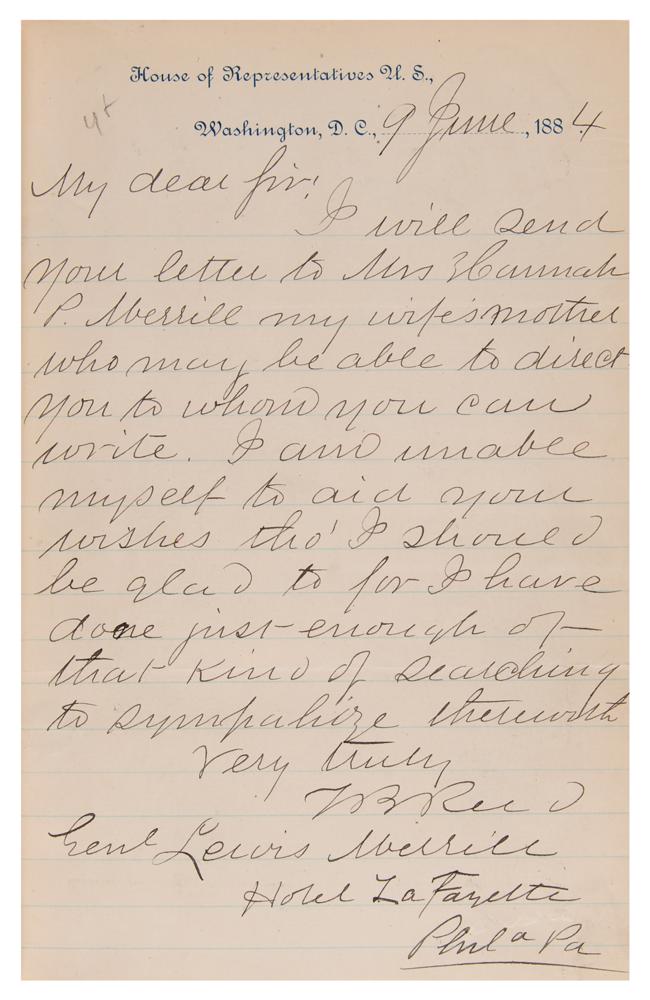 House of Representatives U. S.,
Washington, D. C., 9 June, 1884
My dear Sir!
I will send
your letter to Mrs Hannah
P. Merrill my wife's mother
who may be able to direct
you to whom you can
write. I am unable
myself to aid your
wishes tho' I should
be glad to for I have
done just enough of
that kind of searching
to sympathize therewith
Very truly
TB Reed
Genl Lewis Merrill
Hotel La Fayette
Phila Pa